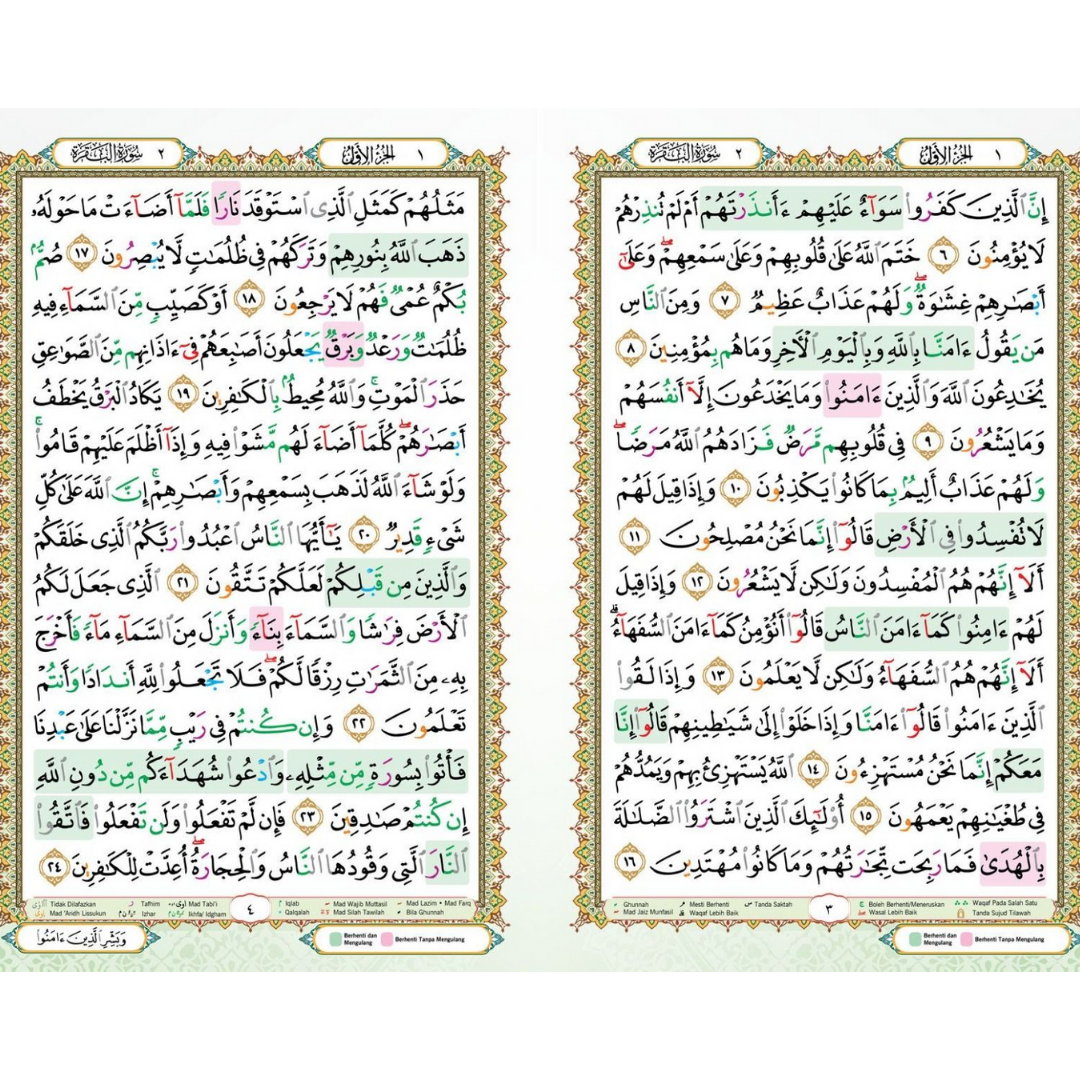 الجزء الأول ١
سورة البقرة ٢
إِنَّ ٱلَّذِينَ كَفَرُوا۟ سَوَآءٌ عَلَيْهِمْ ءَأَنذَرْتَهُمْ أَمْ لَمْ تُنذِرْهُمْ
لَا يُؤْمِنُونَ ٦ خَتَمَ ٱللَّهُ عَلَىٰ قُلُوبِهِمْ وَعَلَىٰ سَمْعِهِمْ ۖ وَعَلَىٰٓ
أَبْصَـٰرِهِمْ غِشَـٰوَةٌ ۖ وَلَهُمْ عَذَابٌ عَظِيمٌ ٧ وَمِنَ ٱلنَّاسِ
مَن يَقُولُ ءَامَنَّا بِٱللَّهِ وَبِٱلْيَوْمِ ٱلْـَٔاخِرِ وَمَا هُم بِمُؤْمِنِينَ ٨
يُخَـٰدِعُونَ ٱللَّهَ وَٱلَّذِينَ ءَامَنُوا۟ وَمَا يَخْدَعُونَ إِلَّآ أَنفُسَهُمْ
وَمَا يَشْعُرُونَ ٩ فِى قُلُوبِهِم مَّرَضٌ فَزَادَهُمُ ٱللَّهُ مَرَضًا ۖ
وَلَهُمْ عَذَابٌ أَلِيمٌۢ بِمَا كَانُوا۟ يَكْذِبُونَ ١٠ وَإِذَا قِيلَ لَهُمْ
لَا تُفْسِدُوا۟ فِى ٱلْأَرْضِ قَالُوٓا۟ إِنَّمَا نَحْنُ مُصْلِحُونَ ١١
أَلَآ إِنَّهُمْ هُمُ ٱلْمُفْسِدُونَ وَلَـٰكِن لَّا يَشْعُرُونَ ١٢ وَإِذَا قِيلَ
لَهُمْ ءَامِنُوا۟ كَمَآ ءَامَنَ ٱلنَّاسُ قَالُوٓا۟ أَنُؤْمِنُ كَمَآ ءَامَنَ ٱلسُّفَهَآءُ ۗ
أَلَآ إِنَّهُمْ هُمُ ٱلسُّفَهَآءُ وَلَـٰكِن لَّا يَعْلَمُونَ ١٣ وَإِذَا لَقُوا۟
ٱلَّذِينَ ءَامَنُوا۟ قَالُوٓا۟ ءَامَنَّا وَإِذَا خَلَوْا۟ إِلَىٰ شَيَـٰطِينِهِمْ قَالُوٓا۟ إِنَّا
مَعَكُمْ إِنَّمَا نَحْنُ مُسْتَهْزِءُونَ ١٤ ٱللَّهُ يَسْتَهْزِئُ بِهِمْ وَيَمُدُّهُمْ
فِى طُغْيَـٰنِهِمْ يَعْمَهُونَ ١٥ أُو۟لَـٰٓئِكَ ٱلَّذِينَ ٱشْتَرَوُا۟ ٱلضَّلَـٰلَةَ
بِٱلْهُدَىٰ فَمَا رَبِحَت تِّجَـٰرَتُهُمْ وَمَا كَانُوا۟ مُهْتَدِينَ ١٦
Ghunnah Mesti Berhenti Tanda Saktah Boleh Berhenti/Meneruskan Waqaf Pada Salah Satu
Mad Jaiz Munfasil Waqaf Lebih Baik Wasal Lebih Baik Tanda Sujud Tilawah
٣
Berhenti dan Mengulang Berhenti Tanpa Mengulang
الجزء الأول ١
سورة البقرة ٢
مَثَلُهُمْ كَمَثَلِ ٱلَّذِى ٱسْتَوْقَدَ نَارًا فَلَمَّآ أَضَآءَتْ مَا حَوْلَهُۥ
ذَهَبَ ٱللَّهُ بِنُورِهِمْ وَتَرَكَهُمْ فِى ظُلُمَـٰتٍ لَّا يُبْصِرُونَ ١٧ صُمٌّۢ
بُكْمٌ عُمْىٌ فَهُمْ لَا يَرْجِعُونَ ١٨ أَوْ كَصَيِّبٍ مِّنَ ٱلسَّمَآءِ فِيهِ
ظُلُمَـٰتٌ وَرَعْدٌ وَبَرْقٌ يَجْعَلُونَ أَصَـٰبِعَهُمْ فِىٓ ءَاذَانِهِم مِّنَ ٱلصَّوَٰعِقِ
حَذَرَ ٱلْمَوْتِ ۚ وَٱللَّهُ مُحِيطٌۢ بِٱلْكَـٰفِرِينَ ١٩ يَكَادُ ٱلْبَرْقُ يَخْطَفُ
أَبْصَـٰرَهُمْ ۖ كُلَّمَآ أَضَآءَ لَهُم مَّشَوْا۟ فِيهِ وَإِذَآ أَظْلَمَ عَلَيْهِمْ قَامُوا۟ ۚ
وَلَوْ شَآءَ ٱللَّهُ لَذَهَبَ بِسَمْعِهِمْ وَأَبْصَـٰرِهِمْ ۚ إِنَّ ٱللَّهَ عَلَىٰ كُلِّ
شَىْءٍ قَدِيرٌ ٢٠ يَـٰٓأَيُّهَا ٱلنَّاسُ ٱعْبُدُوا۟ رَبَّكُمُ ٱلَّذِى خَلَقَكُمْ
وَٱلَّذِينَ مِن قَبْلِكُمْ لَعَلَّكُمْ تَتَّقُونَ ٢١ ٱلَّذِى جَعَلَ لَكُمُ
ٱلْأَرْضَ فِرَٰشًا وَٱلسَّمَآءَ بِنَآءً وَأَنزَلَ مِنَ ٱلسَّمَآءِ مَآءً فَأَخْرَجَ
بِهِۦ مِنَ ٱلثَّمَرَٰتِ رِزْقًا لَّكُمْ ۖ فَلَا تَجْعَلُوا۟ لِلَّهِ أَندَادًا وَأَنتُمْ
تَعْلَمُونَ ٢٢ وَإِن كُنتُمْ فِى رَيْبٍ مِّمَّا نَزَّلْنَا عَلَىٰ عَبْدِنَا
فَأْتُوا۟ بِسُورَةٍ مِّن مِّثْلِهِۦ وَٱدْعُوا۟ شُهَدَآءَكُم مِّن دُونِ ٱللَّهِ
إِن كُنتُمْ صَـٰدِقِينَ ٢٣ فَإِن لَّمْ تَفْعَلُوا۟ وَلَن تَفْعَلُوا۟ فَٱتَّقُوا۟
ٱلنَّارَ ٱلَّتِى وَقُودُهَا ٱلنَّاسُ وَٱلْحِجَارَةُ ۖ أُعِدَّتْ لِلْكَـٰفِرِينَ ٢٤
Tidak Dilafazkan Tafhim Mad Tabi'i Iqlab Mad Wajib Muttasil Mad Lazim • Mad Farq
Mad 'Aridh Lissukun Izhar Ikhfa/ Idgham Qalqalah Mad Silah Tawilah Bila Ghunnah
٤
وَبَشِّرِ ٱلَّذِينَ ءَامَنُوا۟
Berhenti dan Mengulang Berhenti Tanpa Mengulang